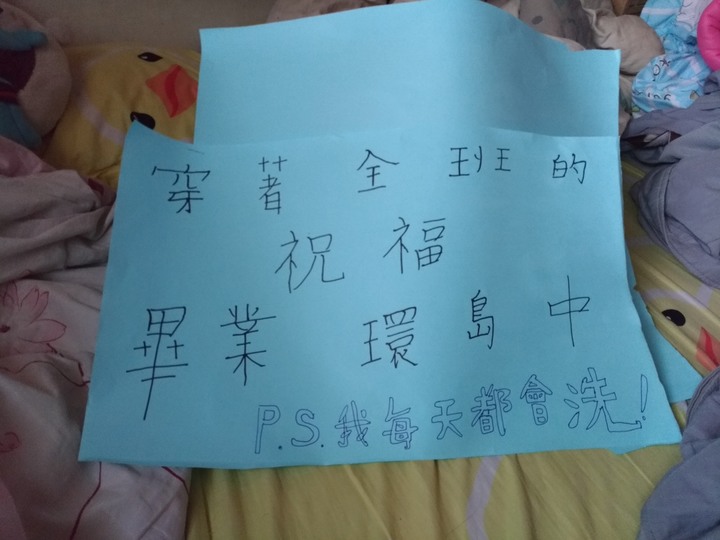 穿著全班的
祝福
畢業環島中
P.S.我每天都會洗!